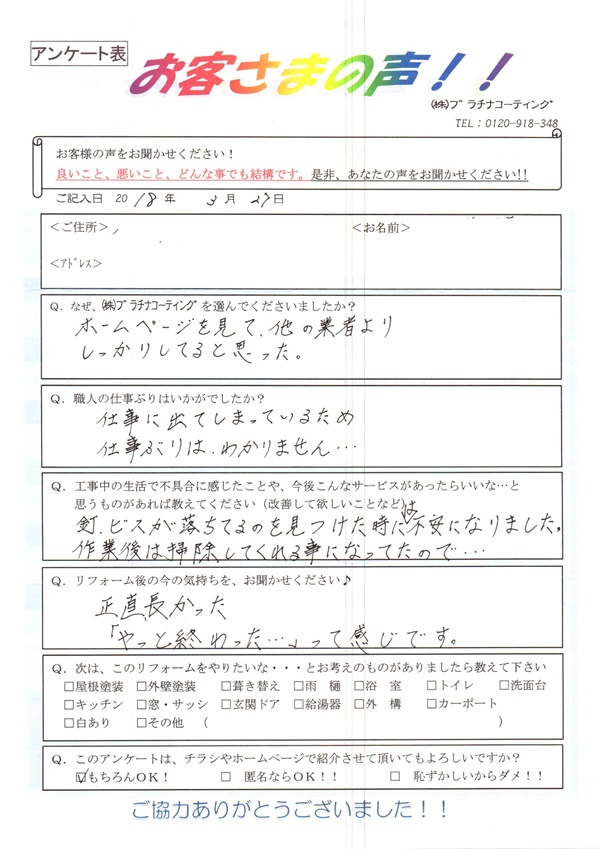 アンケート表
お客さまの声！！
(株)プラチナコーティング
TEL：0120-918-348
お客様の声をお聞かせください！
良いこと、悪いこと、どんな事でも結構です。是非、あなたの声をお聞かせください!!
ご記入日 2018年 3月 27日
＜ご住所＞ ＜お名前＞
＜アドレス＞
Q．なぜ、(株)プラチナコーティングを選んでくださいましたか？
ホームページを見て、他の業者より
しっかりしてると思った。
Q．職人の仕事ぶりはいかがでしたか？
仕事に出てしまっているため
仕事ぶりは、わかりません…
Q．工事中の生活で不具合に感じたことや、今後こんなサービスがあったらいいな…と
思うものがあれば教えてください（改善して欲しいことなど）
釘、ビスが落ちてるのを見つけた時には不安になりました。
作業後は掃除してくれる事になってたので…
Q．リフォーム後の今の気持ちを、お聞かせください♪
正直長かった
「やっと終わった…」って感じです。
Q．次は、このリフォームをやりたいな・・・とお考えのものがありましたら教えて下さい
□屋根塗装 □外壁塗装 □葺き替え □雨 樋 □浴 室 □トイレ □洗面台
□キッチン □窓・サッシ □玄関ドア □給湯器 □外 構 □カーポート
□白あり □その他 （ ）
Q．このアンケートは、チラシやホームページで紹介させて頂いてもよろしいですか？
☑もちろんOK！ □ 匿名ならOK！！ □ 恥ずかしいからダメ！！
ご協力ありがとうございました！！